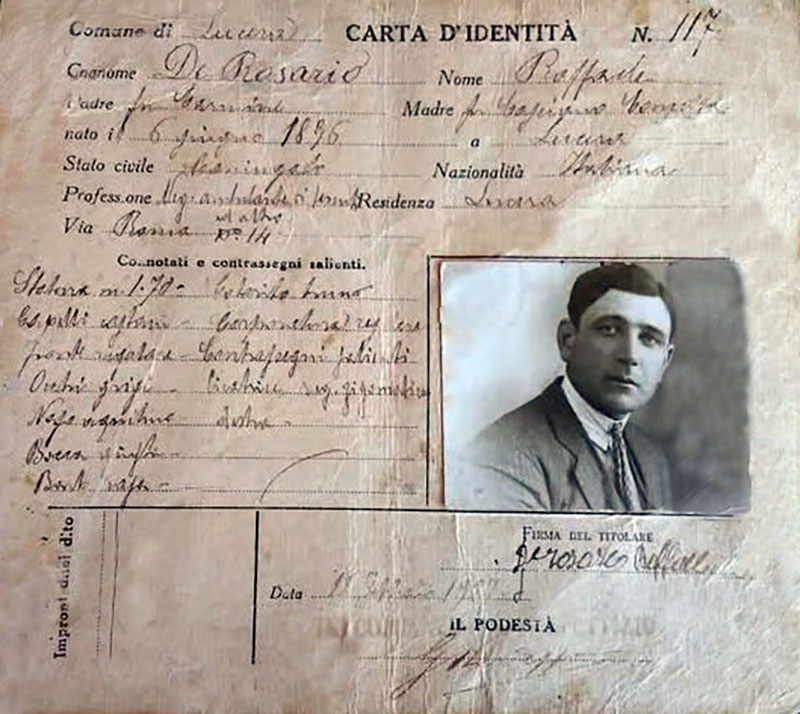 Comune di Lucera CARTA D'IDENTITÀ N. 117
Cognome De Rosario Nome Raffaele
Padre fu Carmine Madre fu
nato il 6 giugno 1896 a Lucera
Stato civile Nazionalità Italiana
Professione Neg. ambulante di Residenza Lucera
Via Roma ed altro
N° 14
Connotati e contrassegni salienti.
Statura m. 1.70 - Colorito bruno
Capelli castani - Corporatura regolare
Fronte regolare - Contrassegni salienti
Occhi grigi - Cicatrice reg. zigomatica
Naso aquilino destra -
Bocca giusta -
Barba rasa -
Impronta del dito
FIRMA DEL TITOLARE
De Rosario Raffaele
Data
IL PODESTÀ